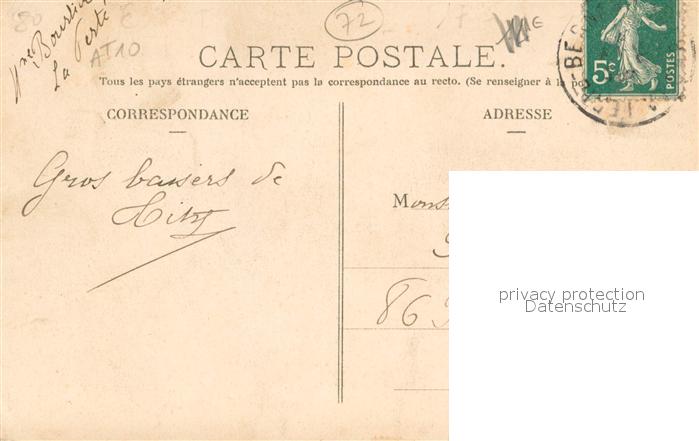 72
AT10
CARTE POSTALE.
Tous les pays étrangers n'acceptent pas la correspondance au recto. (Se renseigner à la p
CORRESPONDANCE
ADRESSE
5c
POSTES
Gros baisers de
Mons
86
privacy protection
Datenschutz